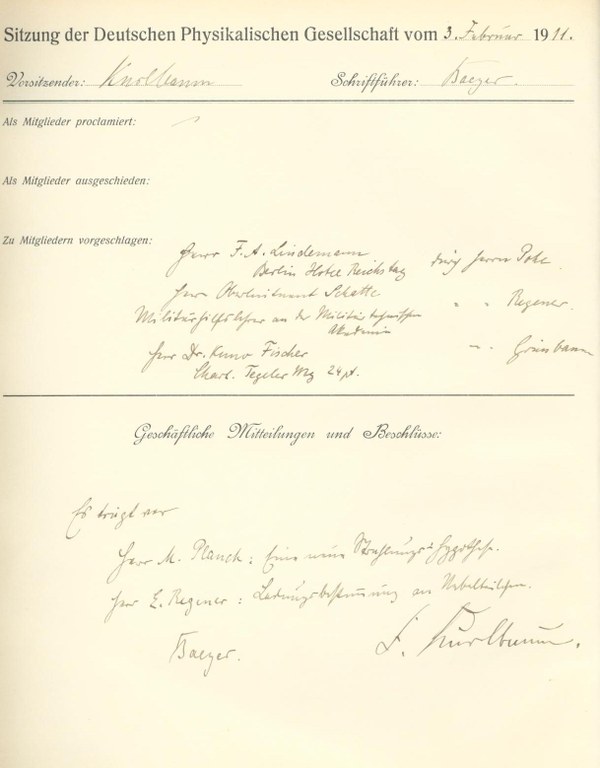 Sitzung der Deutschen Physikalischen Gesellschaft vom 3. Februar 1911.
Vorsitzender: Kurlbaum Schriftführer: Baeyer.
Als Mitglieder proclamiert: —
Als Mitglieder ausgeschieden:
Zu Mitgliedern vorgeschlagen:
Herr F. A. Lindemann durch Herrn
Berlin Hotel Reichstag
Herr Oberleutnant " " Regener.
Militärhilfslehrer an der Militärtechnischen
Akademie
Herr Dr. Kuno Fischer " " Grünbaum
Charl. Tegeler Weg 24
Geschäftliche Mitteilungen und Beschlüsse:
Es trägt vor
Herr M. Planck: Eine neue Strahlungshypothese.
Herr E. Regener: Ladungsbestimmung an Nebelteilchen.
Baeyer.
F. Kurlbaum.